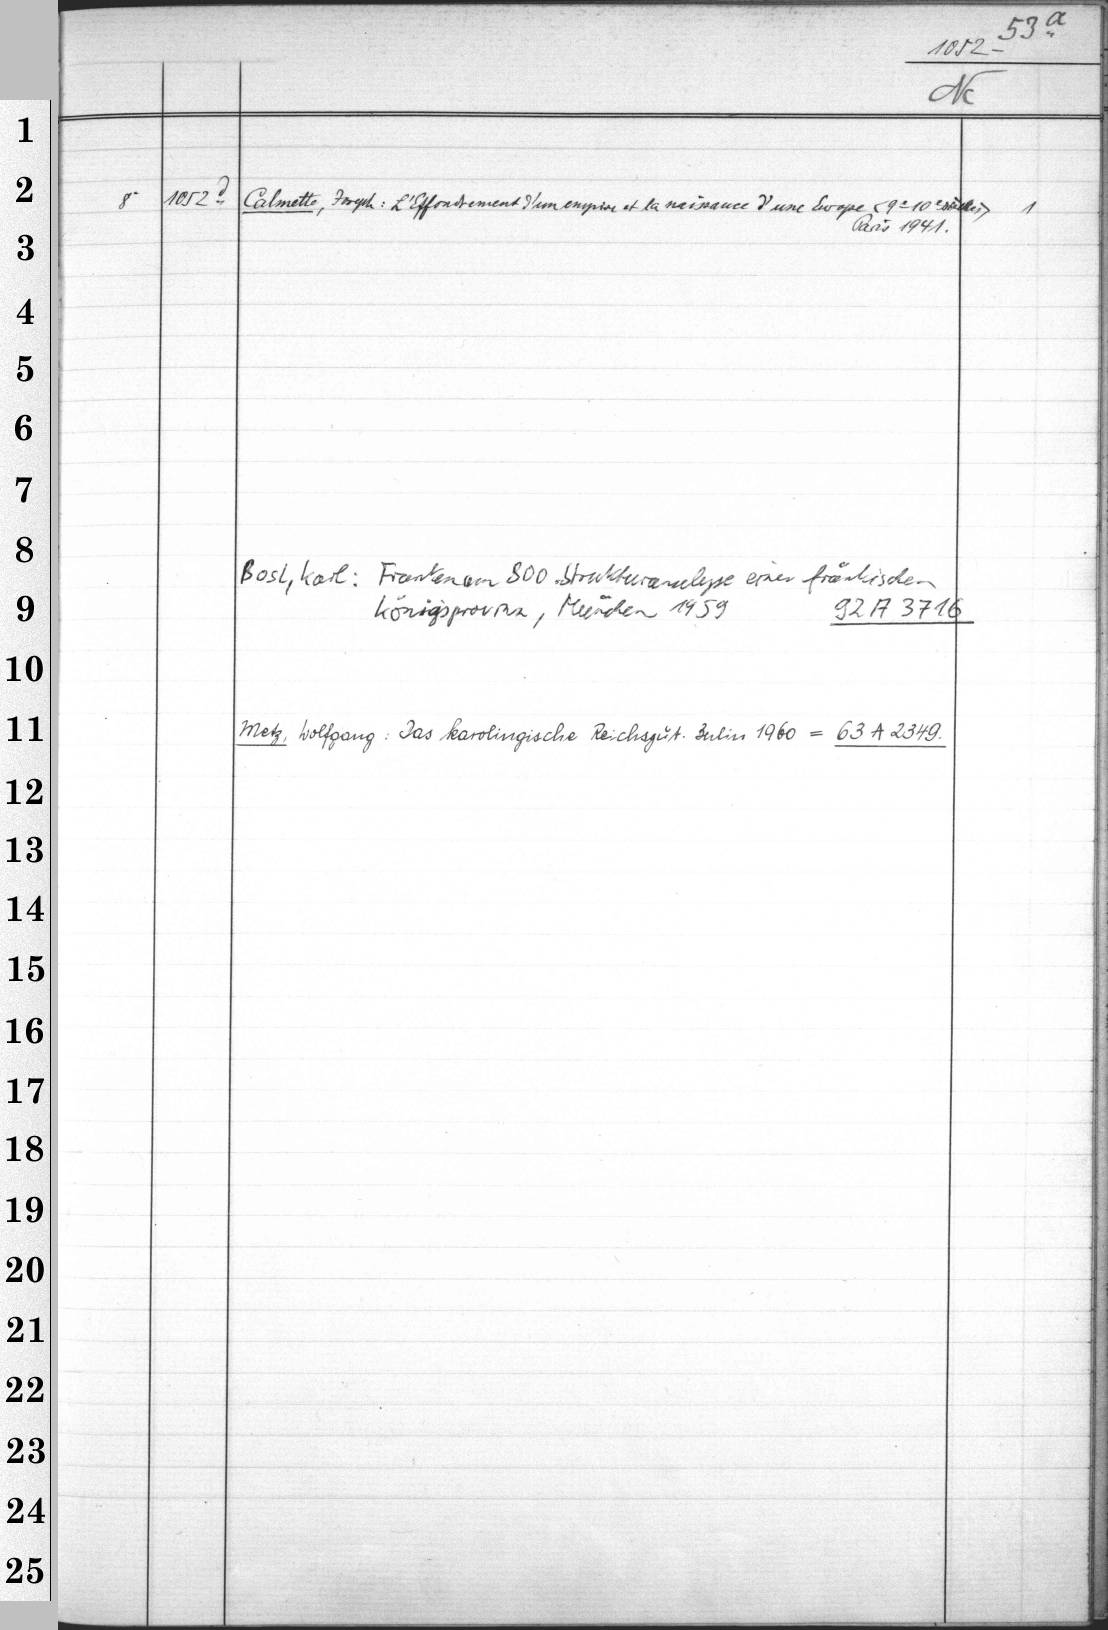 53a
1052-
Nc
1
2
8° 1052d Calmette, Joseph: L'Effondrement d'un empire et la naissance d'une Europe <9e-10e siècles> 1
Paris 1941.
3
4
5
6
7
8
Bosl, Karl: Franken um 800. Strukturanalyse einer fränkischen
9
Königsprovinz, München 1959 92 A 3716
10
11
Metz, Wolfgang: Das karolingische Reichsgut. Berlin 1960 = 63 A 2349.
12
13
14
15
16
17
18
19
20
21
22
23
24
25